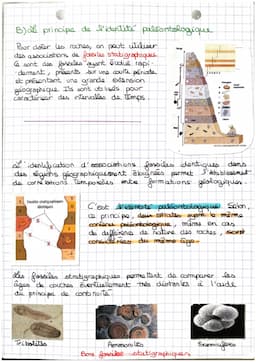 B) Le principe de l'identité paléontologique
Pour dater les roches, on peut utiliser
des associations de fossiles stratigraphiques
Ce sont des fossiles ayant évolué rapi-
dement, présents sur une courte période
et présentant une grande extension
géographique. Ils sont utilisés pour
caractériser des intervalles de temps.
L'identification d'associations fossiles identiques dans
des régions géographiquement éloignées permet l'établissement
de corrélations temporelles entre formations géologiques.
Fossiles stratigraphiques
identiques
C'est l'identité paléontologique. Selon
ce principe, deux strates ayant le même
contenu paléontologique, même en cas
de différence de nature des roches, sont
considérées du même âge.
Les fossiles stratigraphiques permettent de comparer les
âges de couches éventuellement très distantes à l'aide
du principe de continuité.
Trilobites
Ammonites
Foraminifères
Bons fossiles stratigraphiques